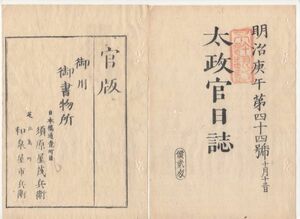 明治庚午第四十四號 十月十三日
太政官日誌
官版
御用
御書物所
日本橋通壹町目
須原屋茂兵衛
芝
和泉屋市兵衛